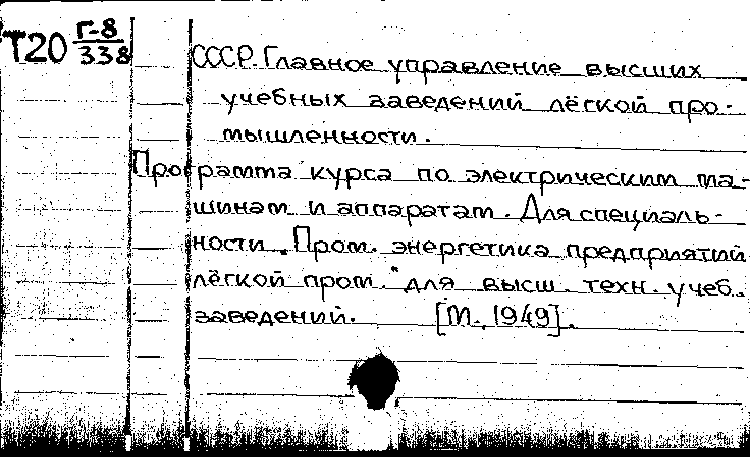 Т20 Г-8
338
СССР. Главное управление высших
учебных заведений лёгкой про-
мышленности.
Программа курса по электрическим ма-
шинам и аппаратам. Для специаль-
ности „Пром. энергетика предприятий
лёгкой пром." для высш. техн. учеб.
заведений. [М., 1949].